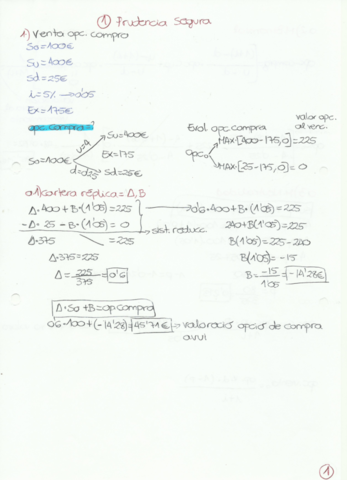 ① Prudencia Segura
1) Venta opc. compra
So=100€
Su=400€
Sd=25€
i=5% → 0'05
Ex=175€
opc. compra=?
Su=400€
u=4
So=100€
Ex=175
d=0'25
Sd=25€
Eval opc compra
valor opc. al venc.
Opc
MAX[400-175,0]=225
MAX[25-175,0]=0
a1) Cartera réplica = Δ,B
Δ·400+B·(1'05)=225
-Δ·25-B·(1'05)=0
sist. reducc
Δ·375 =225
Δ·375=225
Δ=225/375=0'6
0'6·400+B·(1'05)=225
240+B(1'05)=225
B(1'05)=225-240
B(1'05)=-15
B=-15/1'05=-14'28€
Δ·So+B=op compra
0'6·100+(-14'28)=45'71€ → valoració opció de compra
avui
①